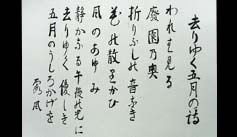 去りゆく五月の詩
われは見る
廃園の奥
折りふしの音なき
花の散りかひ
風のあゆみ
静かなる午後の光に
去りゆく優しき
五月のうしろかげを